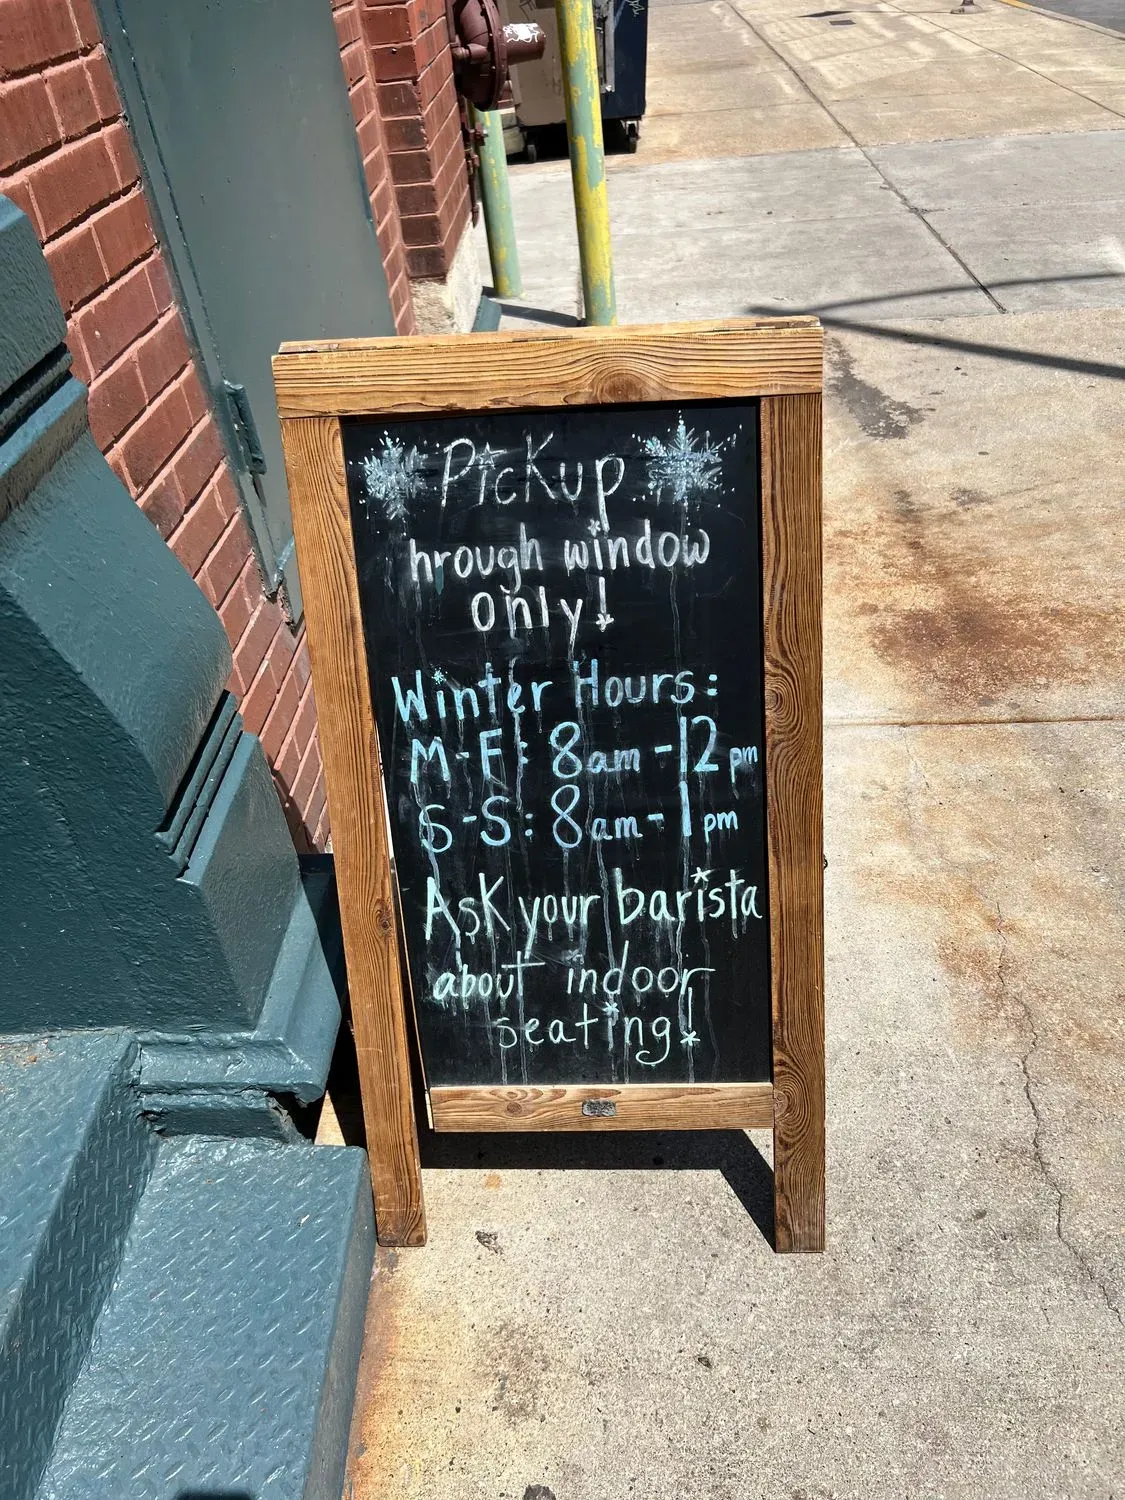 Pickup
hrough window
only!
Winter Hours:
M-F: 8am-12pm
S-S: 8am-1pm
Ask your barista
about indoor
seating!